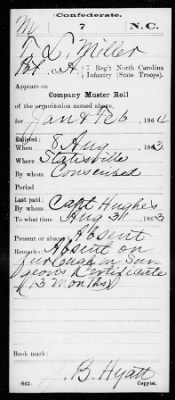 Confederate.
M 7 N.C.
T. L. Miller
Pvt, Co. A, 7 Reg't North Carolina
Infantry (State Troops).
Appears on
Company Muster Roll
of the organization named above,
for Jan & Feb, 1864
Enlisted:
When 8 Aug, 1863
Where Statesville
By whom Conscribed
Period
Last paid:
By whom Capt Hughes
To what time Aug 31, 1863
Present or absent Absent
Remarks: Absent on
furlough on Sur-
geons Certificate
(3 months)
Book mark:
J. B. Hyatt
(642) Copyist.